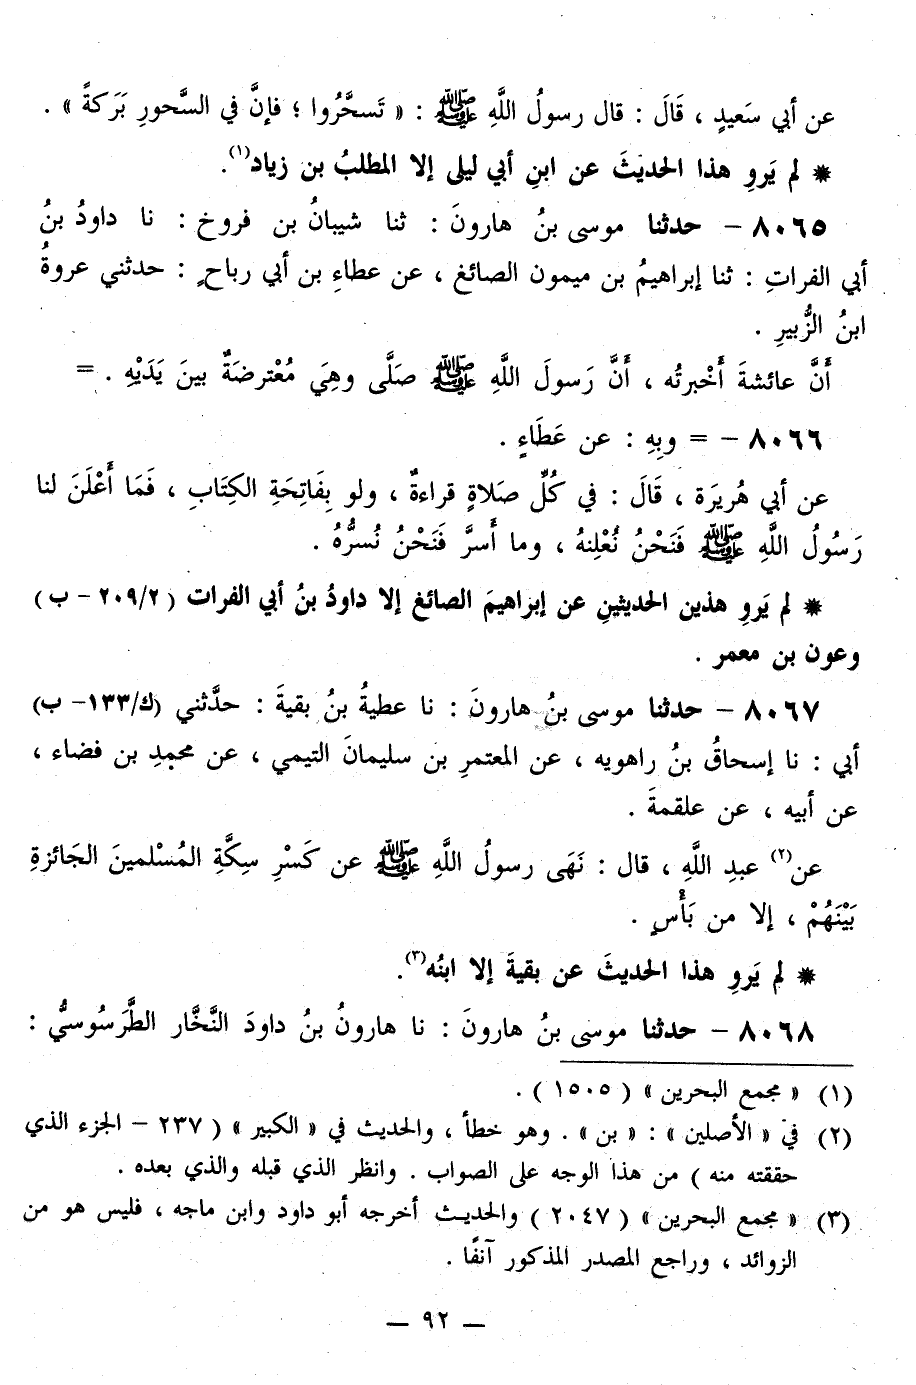 عن أبي سَعيدٍ ، قَالَ : قال رسولُ اللَّهِ ﷺ : « تَسحَّرُوا ؛ فإنَّ في السَّحورِ بَرَكةً » .
* لم يَروِ هذا الحديثَ عن ابنِ أبي ليلى إلا المطلبُ بن زياد(١).
٨٠٦٥ – حدثنا موسى بنُ هارونَ : ثنا شيبانُ بن فروخ : نا داودُ بنُ
أبي الفراتِ : ثنا إبراهيمُ بن ميمون الصائغ ، عن عطاءِ بن أبي رباحٍ : حدثني عروةُ
ابنُ الزُّبيرِ .
أَنَّ عائشةَ أَخْبرتُه ، أَنَّ رَسولَ اللَّهِ ﷺ صَلَّى وهِيَ مُعْترضَةٌ بينَ يَدَيْهِ . =
٨٠٦٦ – = وبِهِ : عن عَطَاءٍ .
عن أبي هُريرَة ، قَالَ : في كُلِّ صَلاةٍ قراءةٌ ، ولو بِفَاتِحَةِ الكِتَابِ ، فَمَا أَعْلَنَ لنا
رَسُولُ اللَّهِ ﷺ فَنَحْنُ نُعْلِنهُ ، وما أَسرَّ فَنَحْنُ نُسرُّهُ .
* لم يَروِ هذين الحديثينِ عن إبراهيمَ الصائغ إلا داودُ بنُ أبي الفرات ( ٢٠٩/٢ – ب )
وعون بن معمر .
٨٠٦٧ – حدثنا موسى بنُ هارونَ : نا عطيةُ بنُ بقيةَ : حدَّثني (ك/١٣٣– ب)
أبي : نا إسحاقُ بنُ راهويه ، عن المعتمرِ بن سليمانَ التيمي ، عن محمدِ بن فضاء ،
عن أبيه ، عن علقمةَ .
عن(٢) عبدِ اللَّهِ ، قال : نَهَى رسولُ اللَّهِ ﷺ عن كَسْرِ سِكَّةِ المُسْلمينَ الجَائزةِ
بَيْنَهُمْ ، إلا من بَأْسٍ .
* لم يَروِ هذا الحديثَ عن بقيةَ إلا ابنُه(٣).
٨٠٦٨ – حدثنا موسى بنُ هارونَ : نا هارونُ بنُ داودَ النَّخَّار الطَّرَسُوسيُّ :
(١) « مجمع البحرين » ( ١٥٠٥ ) .
(٢) في « الأصلين » : « بن » . وهو خطأ ، والحديث في « الكبير » ( ٢٣٧ – الجزء الذي
حققته منه ) من هذا الوجه على الصواب . وانظر الذي قبله والذي بعده .
(٣) « مجمع البحرين » ( ٢٠٤٧ ) والحديث أخرجه أبو داود وابن ماجه ، فليس هو من
الزوائد ، وراجع المصدر المذكور آنفًا .
— ٩٢ —